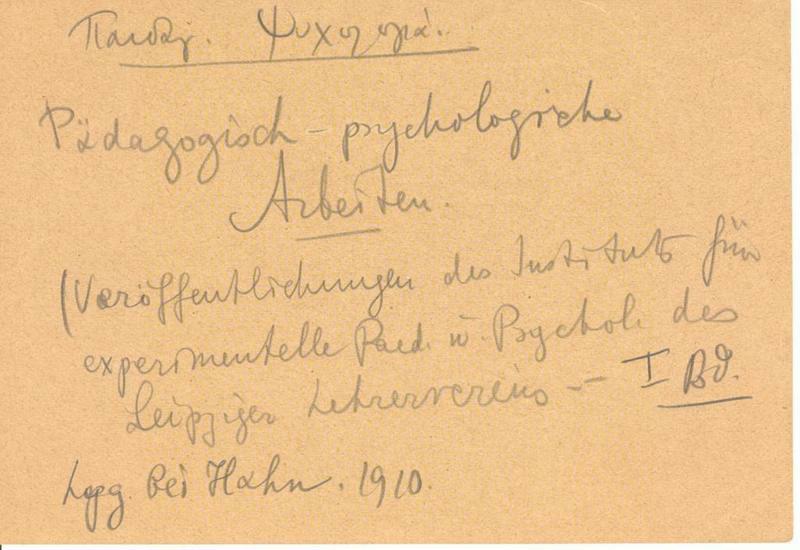 Παιδαγ. Ψυχολογία.
Pädagogisch-psychologische
Arbeiten.
(Veröffentlichungen des Instituts für
experimentelle Paed. u. Psychol. des
Leipziger Lehrervereins – I Bd.
Lpzg. bei Hahn. 1910.